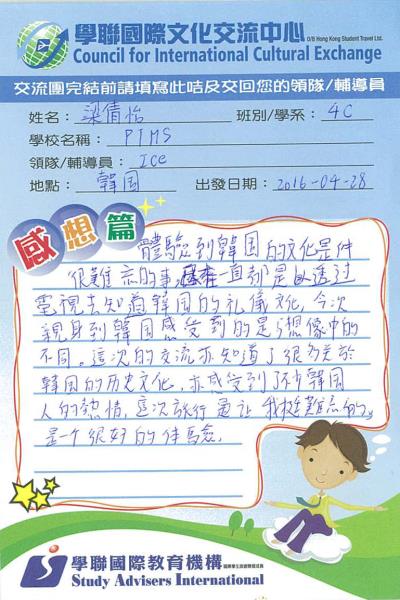 學聯國際文化交流中心 O/B Hong Kong Student Travel Ltd.
Council for International Cultural Exchange
交流團完結前請填寫此咭及交回您的領隊/輔導員
姓名：梁倩怡 班別/學系：4C
學校名稱：PIMS
領隊/輔導員：Ice
地點：韓国 出發日期：2016-04-28
感想篇
體驗到韓国的文化是件
很難忘的事, 一直都是以透过
電視去知道韓国的礼儀文化, 今次
親身到韓国感受到的是与想像中的
不同。這次的交流亦知道了很多关於
韓国的历史文化, 亦感受到了不少韓国
人的熱情, 這次旅行最让我挺難忘的。
是一个很好的体驗。
學聯國際教育機構
Study Advisers International